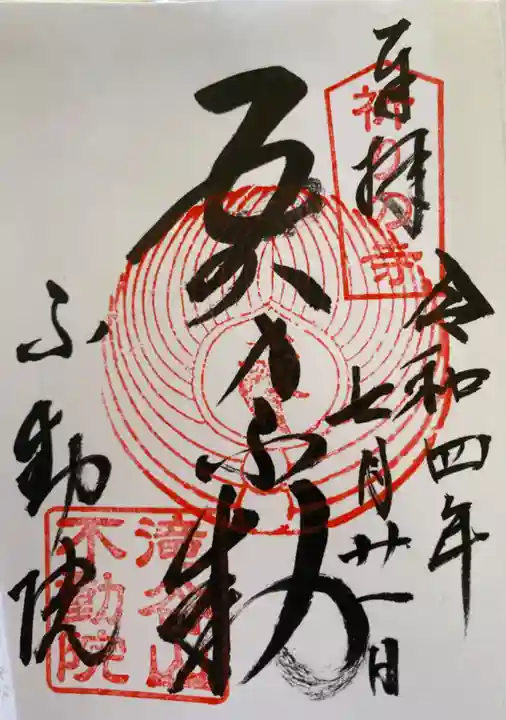 奉拝
祈りの寺
令和四年
七月廿一日
五大力不動
不動院
滝谷山
不動院